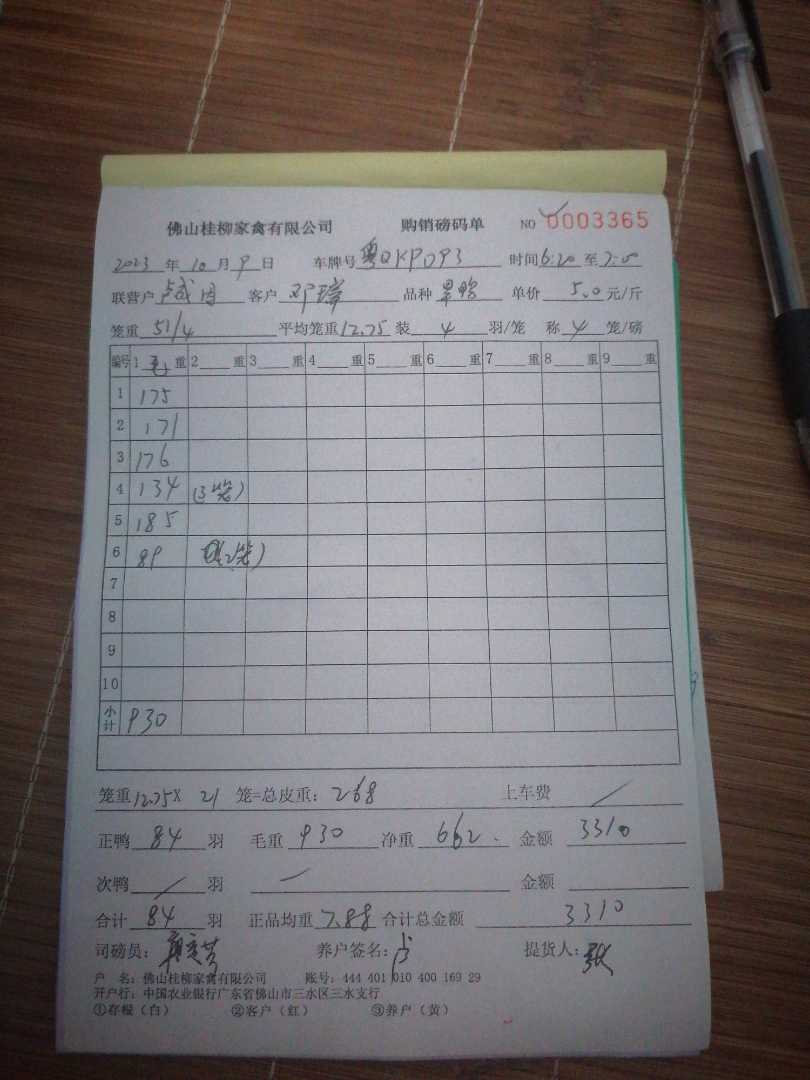 佛山桂柳家禽有限公司 购销磅码单 NO 0003365
2023年10月9日 车牌号 粤QKP093 时间6:20至7:00
联营户 客户 邓瑞 品种 单价 5.0 元/斤
笼重 51/4 平均笼重12.75 装 4 羽/笼 称 4 笼/磅
编号 1 毛 重 2 重 3 重 4 重 5 重 6 重 7 重 8 重 9 重
1 175
2 171
3 176
4 134 (3笼)
5 185
6 89 (2笼)
7
8
9
10
小计 930
笼重12.75× 21 笼=总皮重: 268 上车费 /
正鸭 84 羽 毛重 930 净重 662. 金额 3310
次鸭 / 羽 — 金额
合计 84 羽 正品均重 7.88 合计总金额 3310
司磅员: 养户签名: 卢 提货人: 张
户 名: 佛山桂柳家禽有限公司 账号: 444 401 010 400 169 29
开户行: 中国农业银行广东省佛山市三水区三水支行
①存根(白) ②客户(红) ③养户(黄)